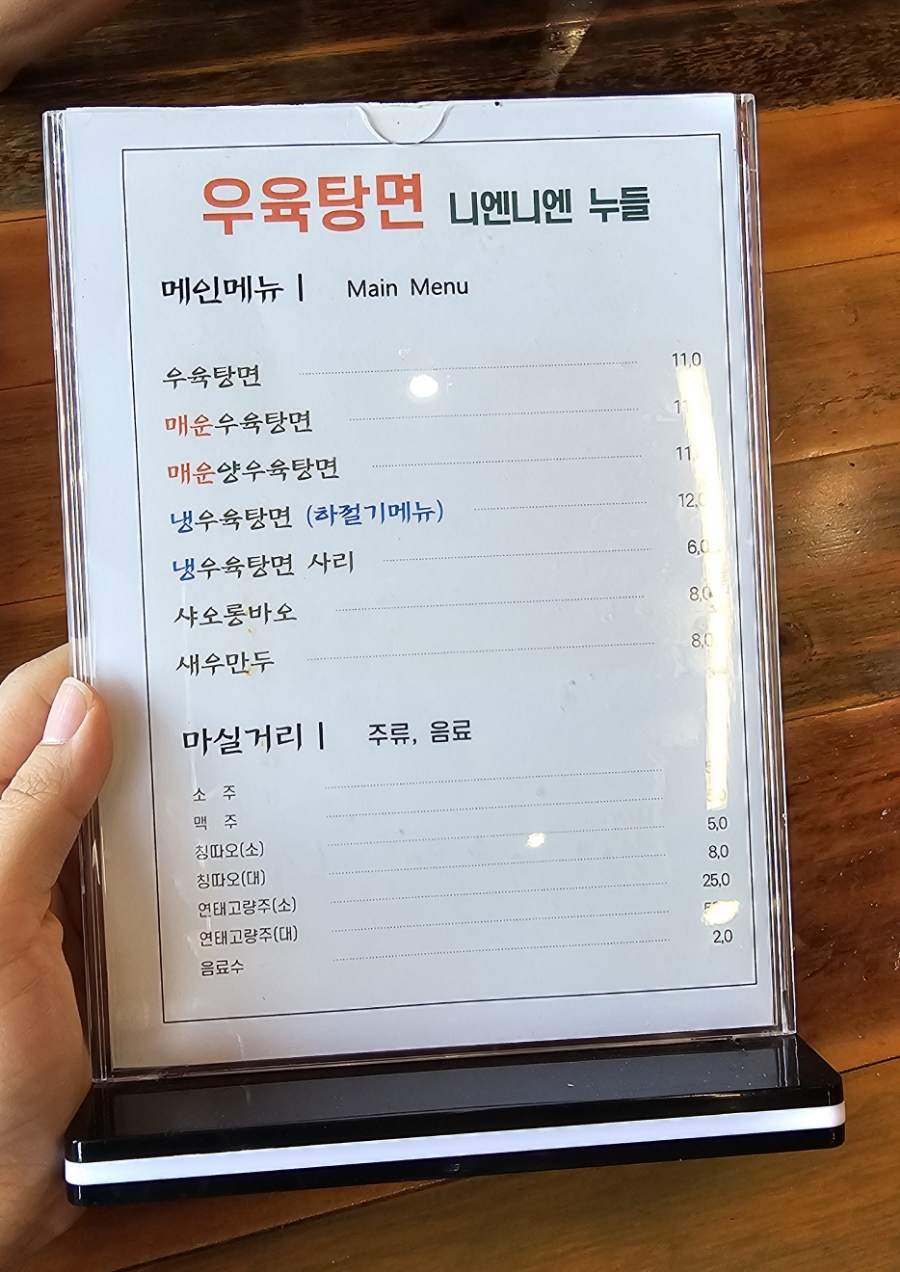 우육탕면 니엔니엔 누들
메인메뉴 | Main Menu
우육탕면 11,0
매운우육탕면
매운양우육탕면
냉우육탕면 (하절기메뉴) 12,0
냉우육탕면 사리 6,0
샤오롱바오 8,0
새우만두 8,0
마실거리 | 주류, 음료
소 주
맥 주
칭따오(소) 5,0
칭따오(대) 8,0
연태고량주(소) 25,0
연태고량주(대)
음료수 2,0